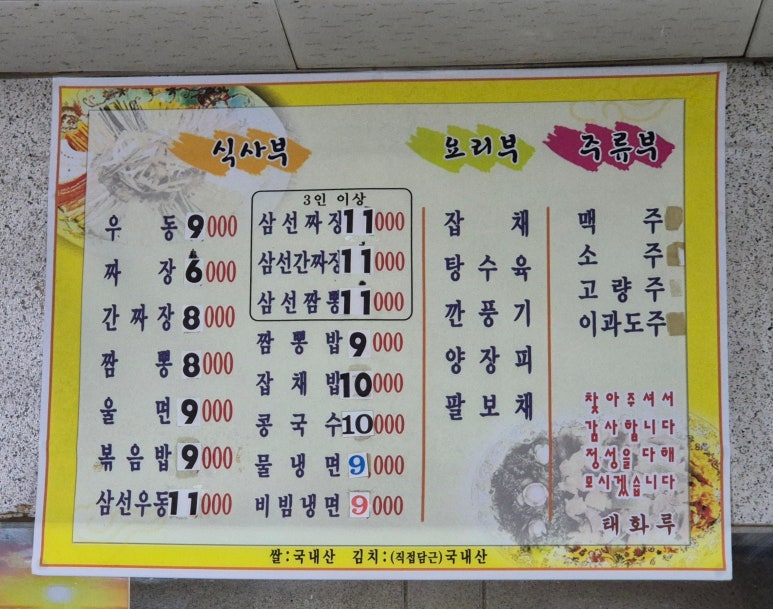 식사부
우동 9000
짜장 6000
간짜장 8000
짬뽕 8000
울면 9000
볶음밥 9000
삼선우동 11000
3인 이상
삼선짜장 11000
삼선간짜장 11000
삼선짬뽕 11000
짬뽕밥 9000
잡채밥 10000
콩국수 10000
물냉면 9000
비빔냉면 9000
요리부
잡채
탕수육
깐풍기
양장피
팔보채
주류부
맥주
소주
고량주
이과도주
찾아주셔서
감사합니다
정성을다해
모시겠습니다
태화루
쌀:국내산 김치:(직접담근)국내산